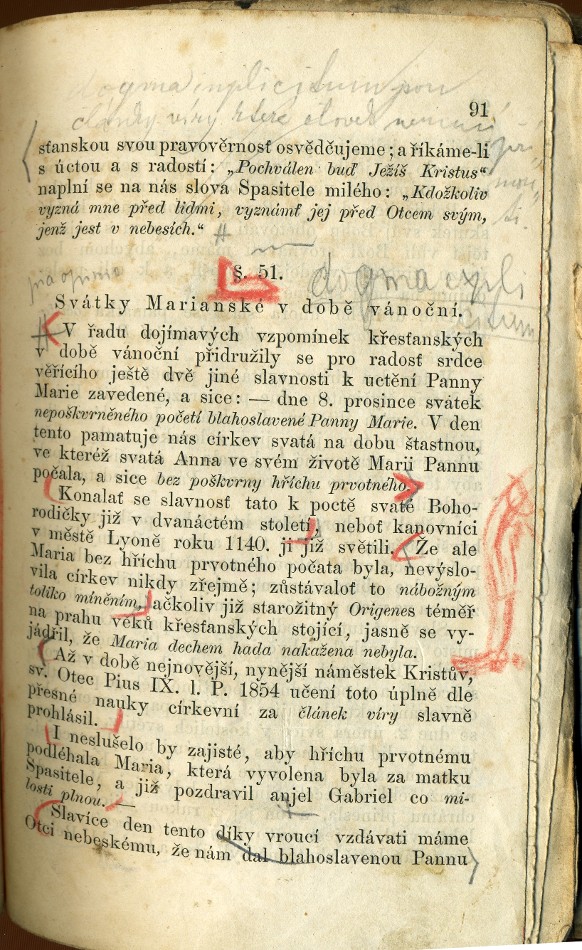 dogma implicitum jsou
články víry které člověk nemusí
91
sťanskou svou pravověrnost osvědčujeme; a říkáme-li
s úctou a s radostí: „Pochválen buď Ježíš Kristus“
naplní se na nás slova Spasitele milého: „Kdožkoliv
vyzná mne před lidmi, vyznámť jej před Otcem svým,
jenž jest v nebesích.“
§. 51.
pia opinio
dogma expli
citum
Svátky Marianské v době vánoční.
V řadu dojímavých vzpomínek křesťanských
v době vánoční přidružily se pro radost srdce
věřícího ještě dvě jiné slavnosti k uctění Panny
Marie zavedené, a sice: — dne 8. prosince svátek
nepoškvrněného početí blahoslavené Panny Marie. V den
tento pamatuje nás církev svatá na dobu štastnou,
ve kteréž svatá Anna ve svém životě Marii Pannu
počala, a sice bez poškvrny hříchu prvotného.
Konalať se slavnosť tato k poctě svaté Boho-
rodičky již v dvanáctém století, neboť kanovníci
v městě Lyoně roku 1140. ji již světili. Že ale
Maria bez hříchu prvotného počata byla, nevýslo-
vila církev nikdy zřejmě; zůstávaloť to nábožným
toliko míněním, ačkoliv již starožitný Origenes téměř
na prahu věků křesťanských stojící, jasně se vy-
jádřil, že Maria dechem hada nakažena nebyla.
Až v době nejnovější, nynější náměstek Kristův,
sv. Otec Pius IX. l. P. 1854 učení toto úplně dle
přesné nauky církevní za článek víry slavně
prohlásil.
I neslušelo by zajisté, aby hříchu prvotnému
podléhala Maria, která vyvolena byla za matku
Spasitele, a již pozdravil anjel Gabriel co mi-
losti plnou.
Slavíce den tento díky vroucí vzdávati máme
Otci nebeskému, že nám dal blahoslavenou Pannu